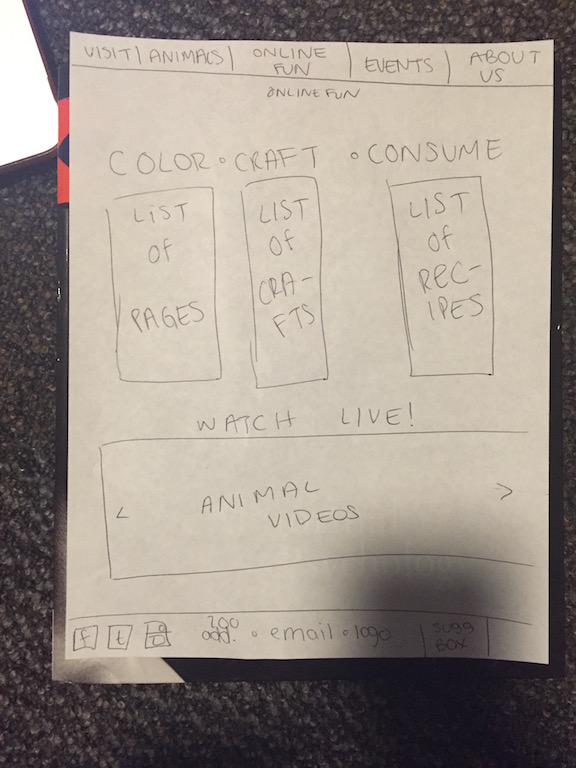 VISIT | ANIMALS | ONLINE FUN | EVENTS | ABOUT US
ONLINE FUN
COLOR • CRAFT • CONSUME
LIST
OF
PAGES
LIST
OF
CRA-
FTS
LIST
OF
REC-
IPES
WATCH LIVE!
<
ANIMAL
VIDEOS
>
f t
zoo
add. • email • logo
SUGG
BOX